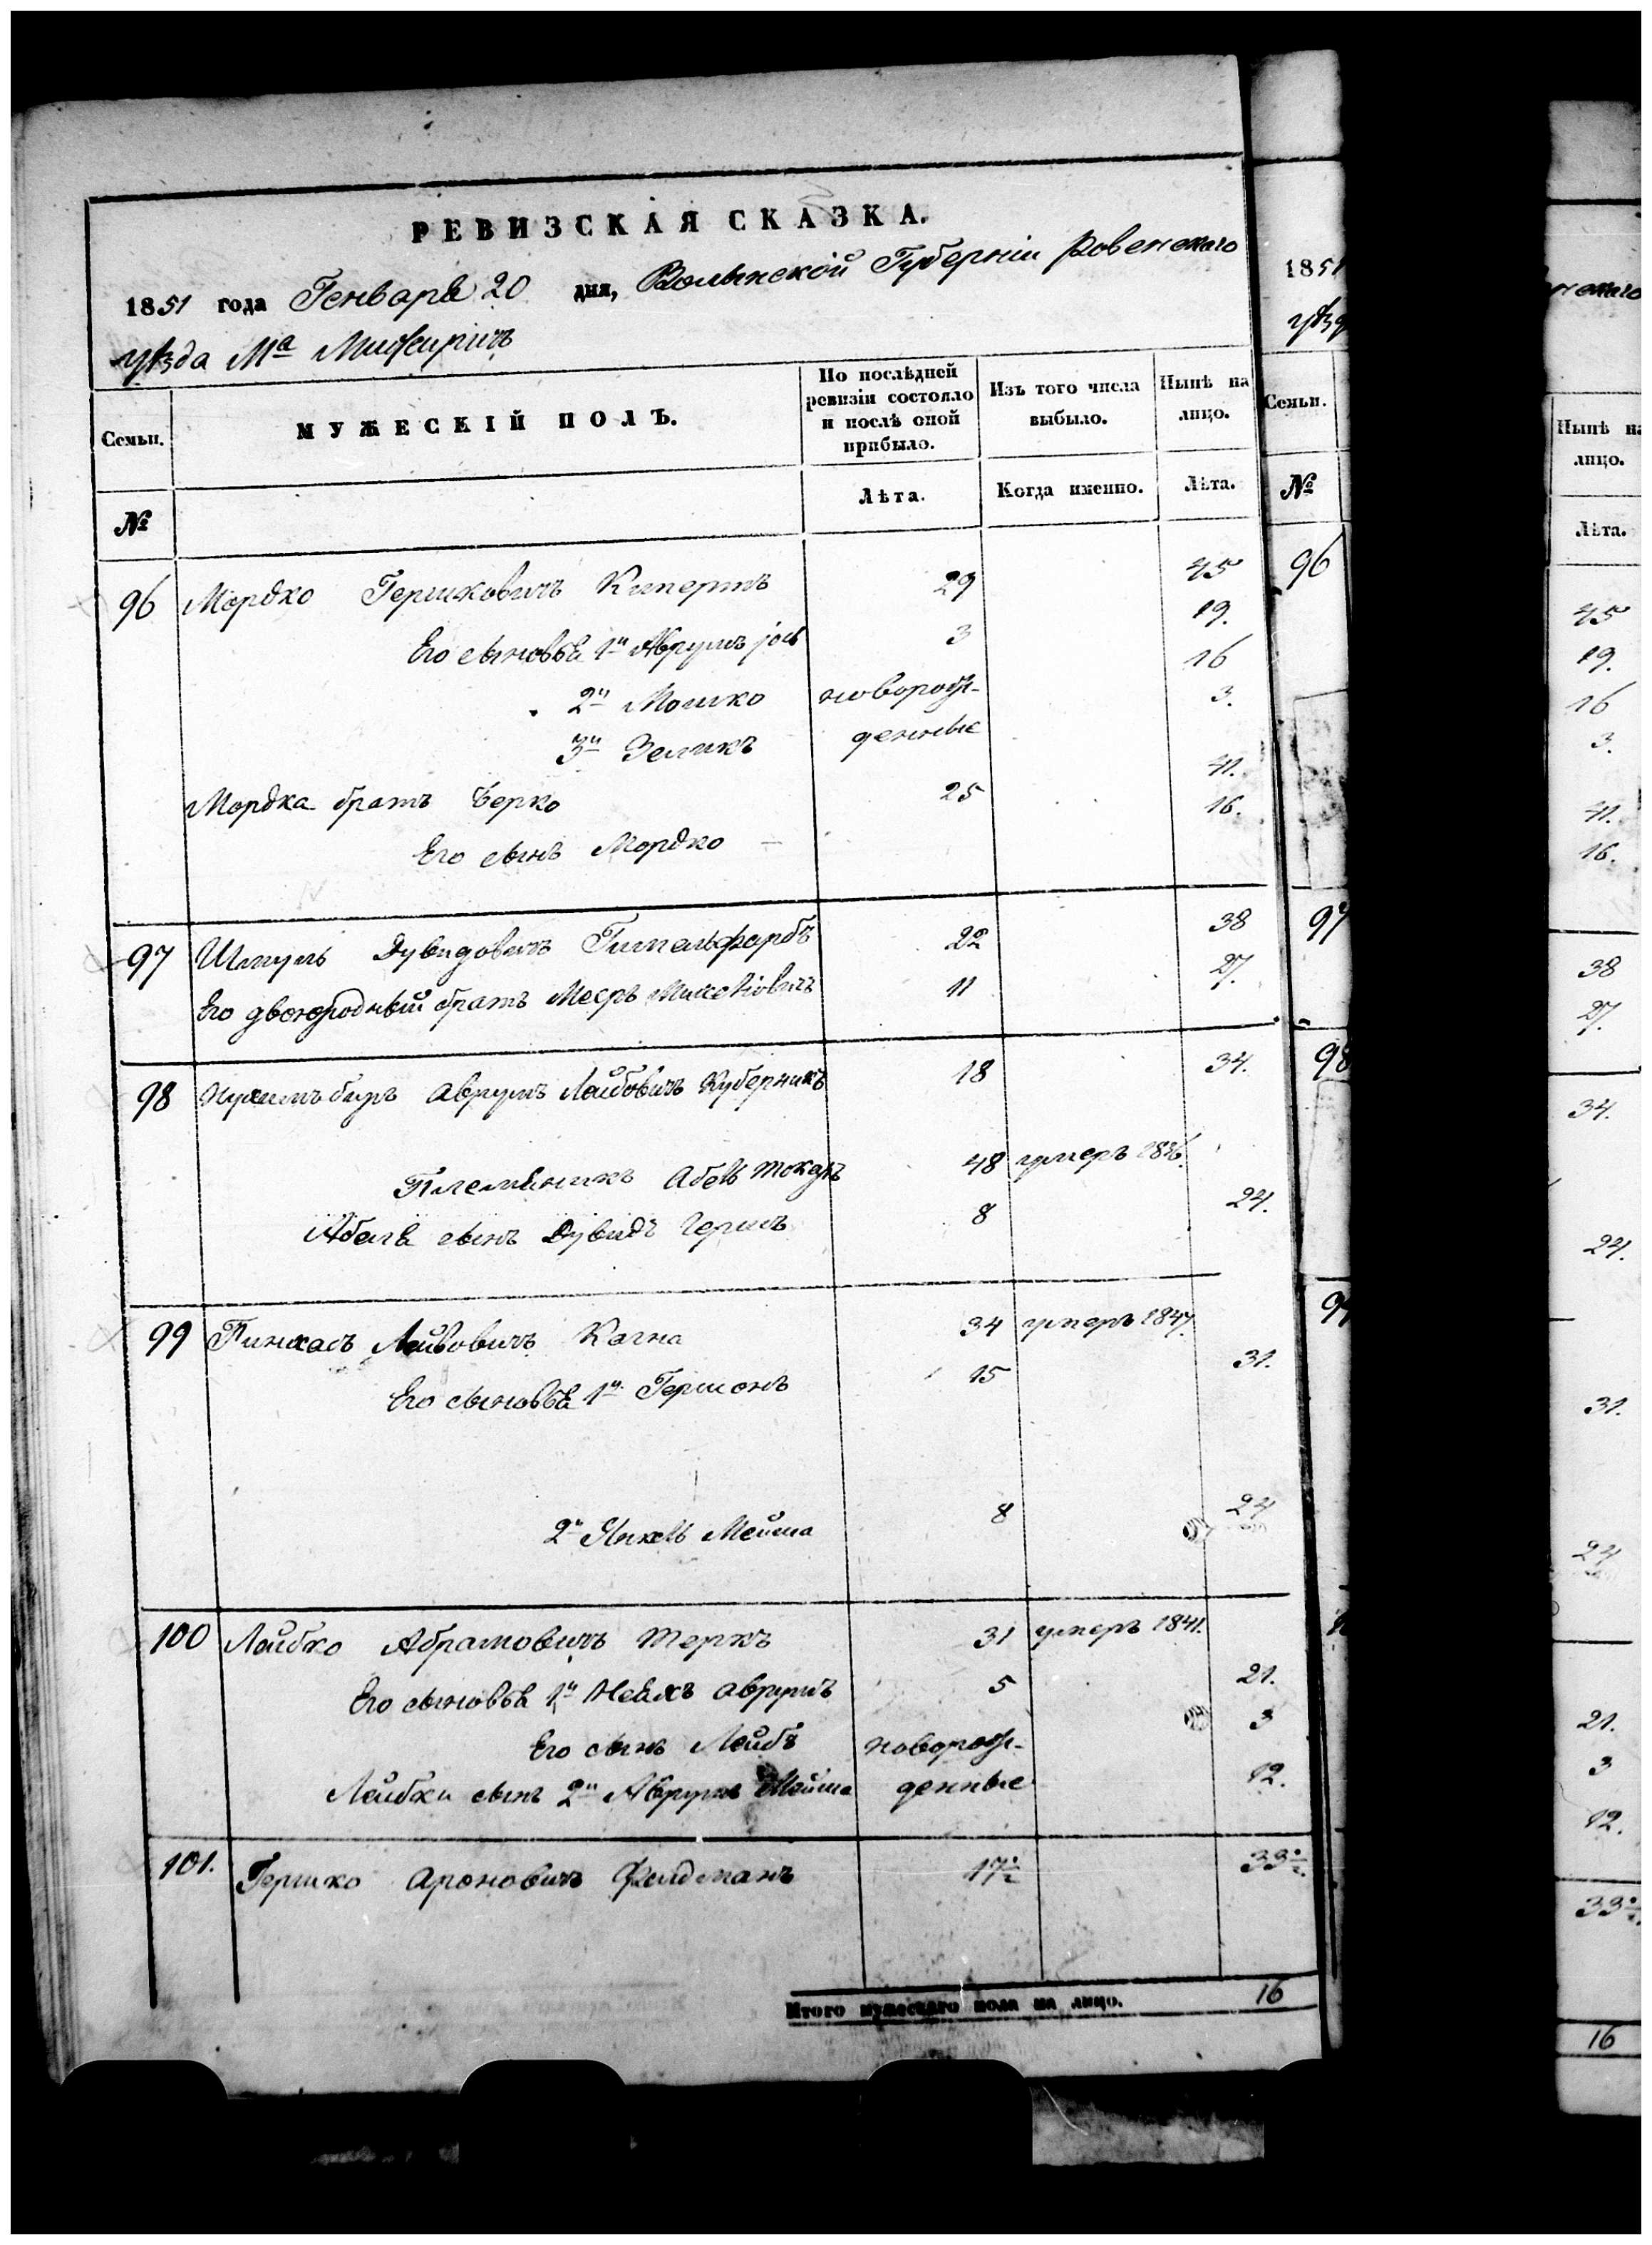 РЕВИЗСКАЯ СКАЗКА.
1851 года Генваря 20 дня, Волынской Губерніи Ровенскаго
уѣзда Мᵃ Мижиричъ
Семьи. МУЖЕСКІЙ ПОЛЪ. По послѣдней ревизіи состояло и послѣ оной прибыло. Изъ того числа выбыло. Нынѣ на лицо.
№ Лѣта. Когда именно. Лѣта.
96 Мордко Гершковичъ Кипертъ 29 45
Его сыновья 1й Аврумъ іось 3 19.
2й Мошко новорож- 16
3й Зеликъ денные 3.
Мордка братъ Берко 25 41.
Его сынъ Мордко — 16.
97 Шмуль Дувидовичъ Гительфарбъ 22 38
Его двоюродный братъ Мееръ 11 27.
98 Аврумъ Лейбовичъ Куберникъ 18 34.
Племяникъ Абель Токарь 48 умеръ 1846.
Абеля сынъ Дувидъ Гершъ 8 24.
99 Пинхасъ Лейбовичъ Кагна 34 умеръ 1847.
Его сыновья 1й Гершонъ 15 31.
2й Янкель Мейша 8 24
100 Лейбко Абрамовичъ Теркъ 31 умеръ 1841.
Его сыновья 1й Неахъ аврумъ 5 21.
Его сынъ Лейбъ новорож- 3
Лейбки сынъ 2й Аврумъ Мейша денные 12.
101. Гершко Ароновичъ Фелдманъ 17½ 33½.
Итого мужескаго пола на лицо. 16
1851
уѣзд
Семьи.
№
96
97
98
99
нскаго
Нынѣ на
лицо.
Лѣта.
45
19.
16
3.
41.
16.
38
27.
34.
24.
31.
24
21.
3
12.
33½.
16